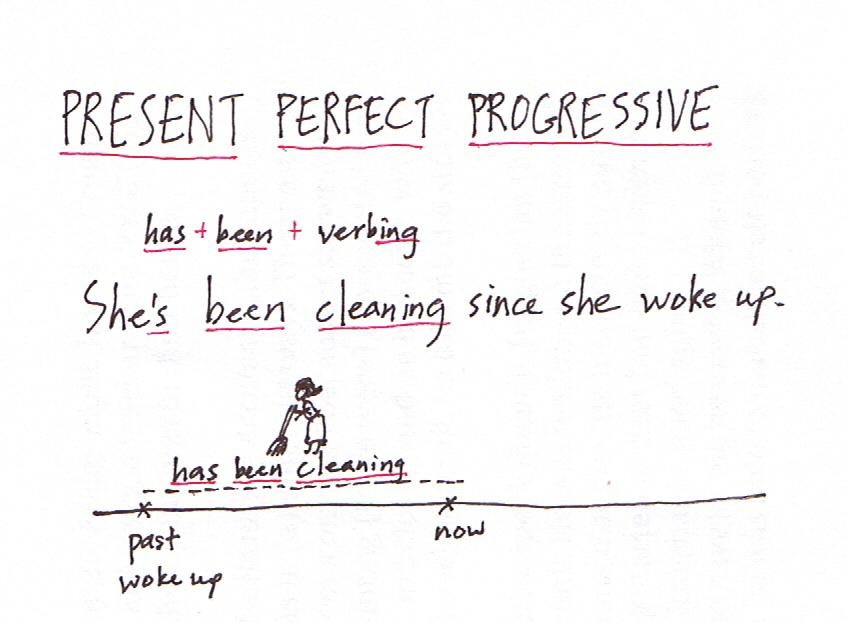 PRESENT PERFECT PROGRESSIVE
has + been + verbing
She's been cleaning since she woke up.
has been cleaning
past
now
woke up